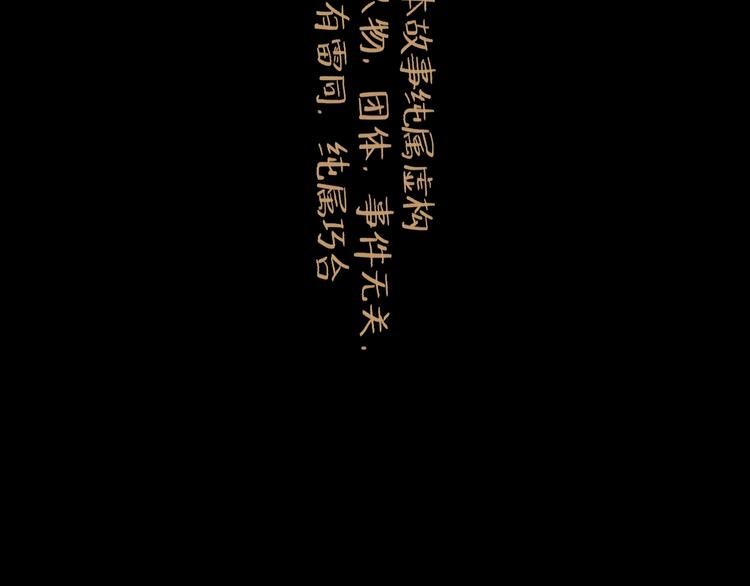 本故事纯属虚构
人物，团体，事件无关，
有雷同，纯属巧合